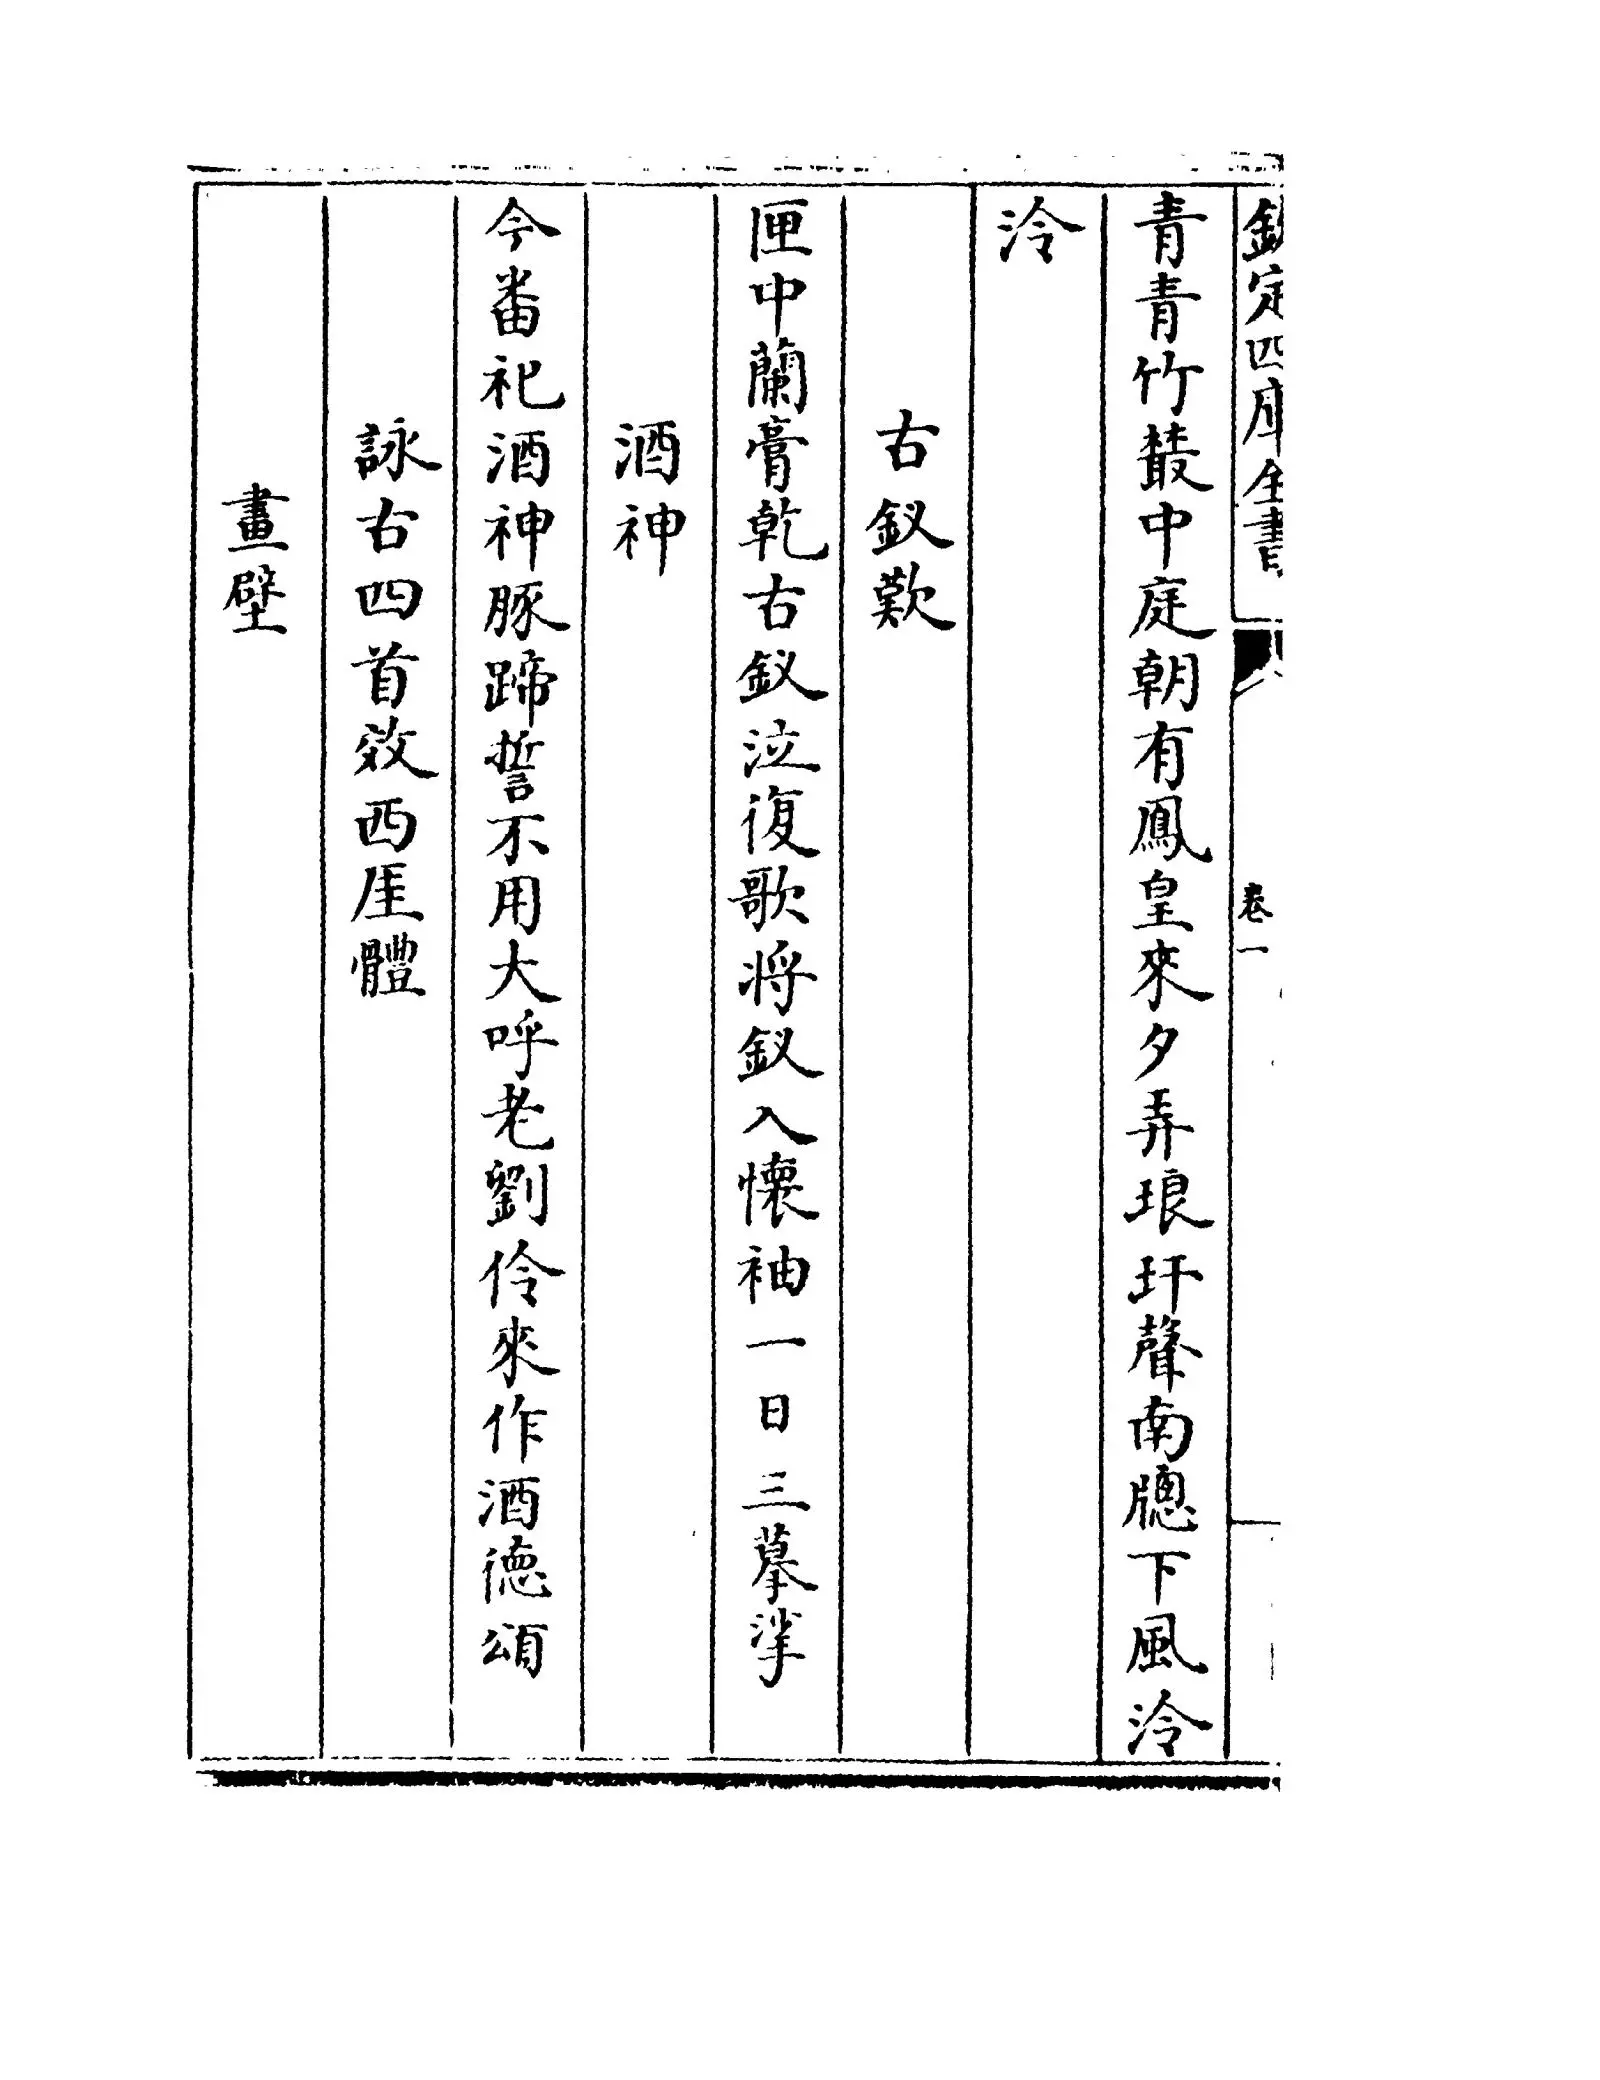 欽定四庫全書
卷一
青青竹叢中庭朝有鳳皇來夕弄琅玕聲南牕下風泠
泠
右釵歎
匣中蘭膏乾右釵泣復歌將釵入懷袖一日三摹挲
酒神
今番祀酒神豚蹄誓不用大呼老劉伶來作酒德頌
詠右四首效西厓體
畫壁